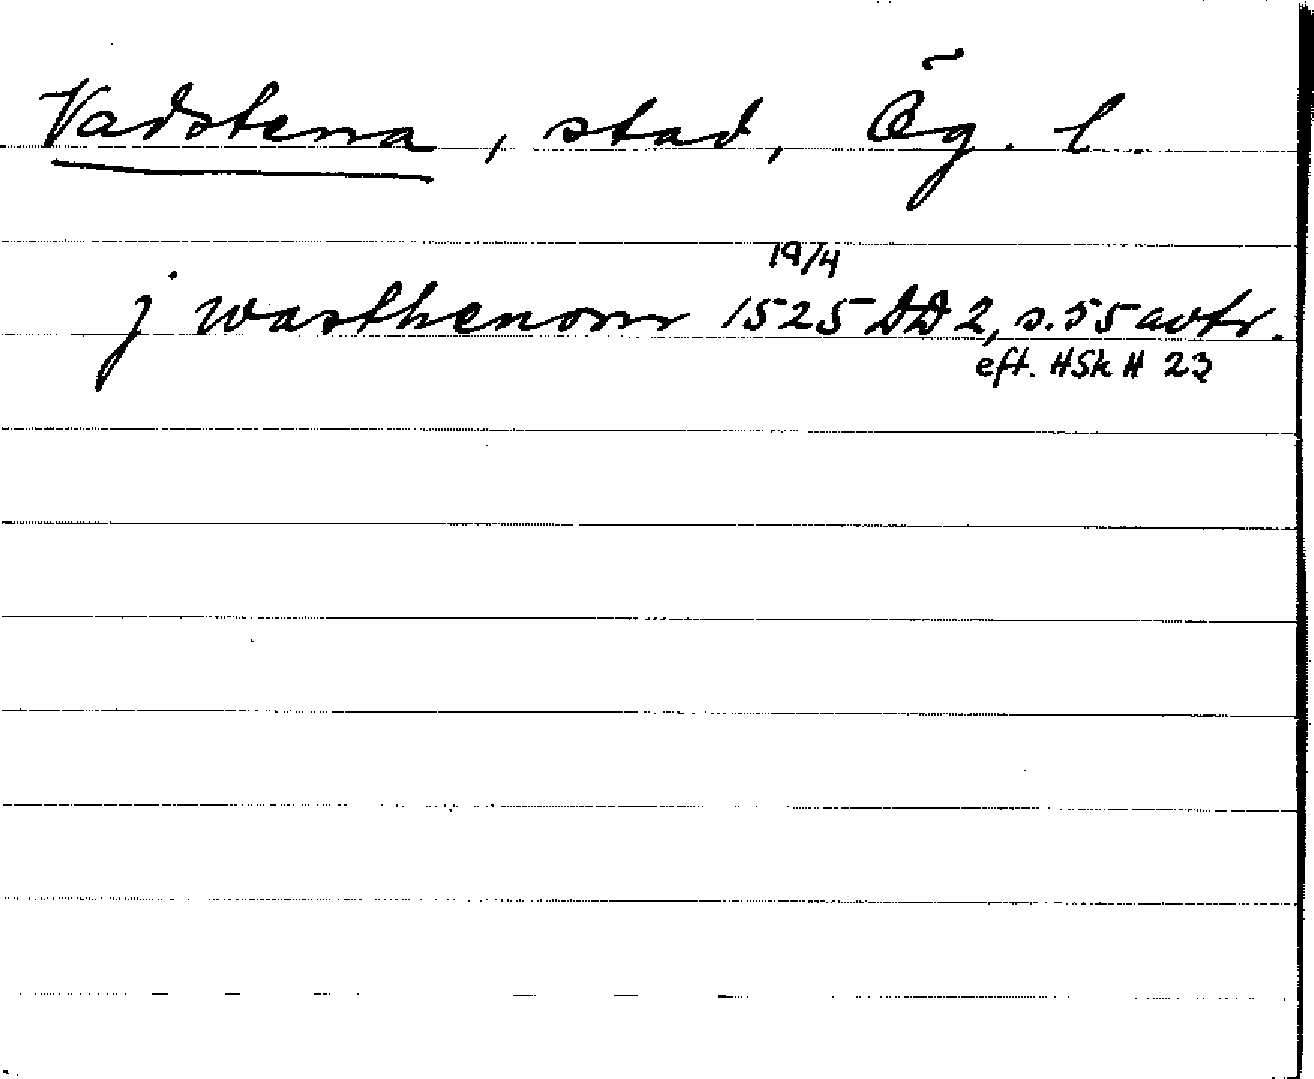 Vadstena, stad, Ög. l
19/4
j wasthenom 1525 DD 2, s. 55 avtr.
eft. HSk H 23